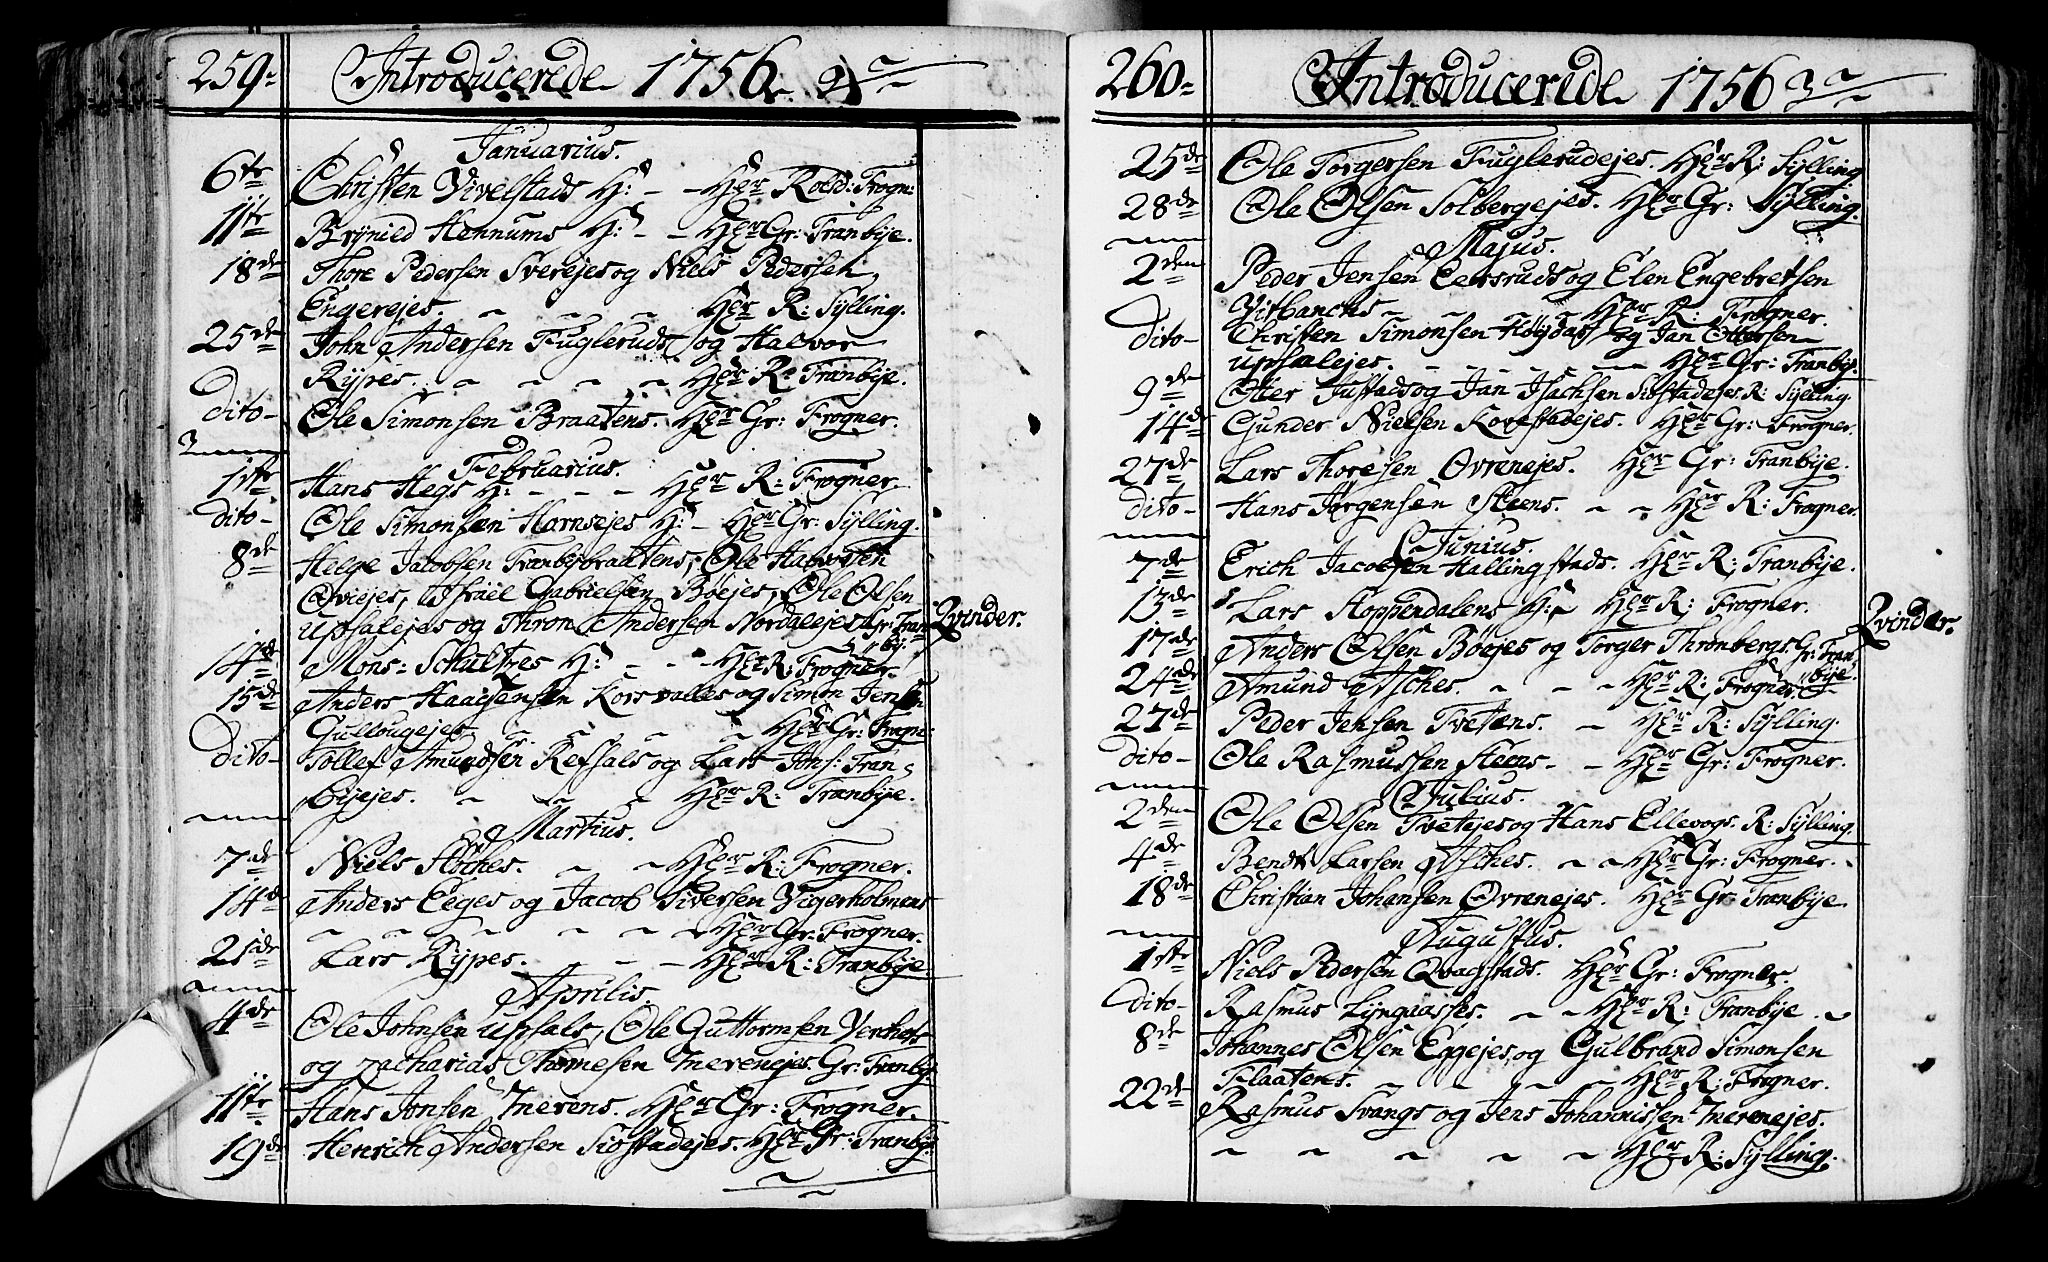 259. Introducerede 1756. 2a
Januarius.
6te Christen Vivelstads H: - - Her Rolid: Frogn:
11te Brynild Hennums H: - - Her Gr: Tranbye.
18de Thore Pedersen Sverejes og Niels Pedersen
Engerejes. Her R: Sylling.
25de John Andersen Fuglerud og Halvor
Rypes. Her R: Tranbye.
Dito- Ole Simonsen Braatens. Her Gr: Frogner.
Februarius.
1ste Hans Hegs H: - - - Her R: Frogner.
dito- Ole Simonsen Harnsejes H: - Her Gr: Sylling.
8de Helge Jacobsen Tranbybraatens, Ole Halvorsen
Oviejes, Israel Gabrielsen Bøejes, Ole Olsen
Upsalejes og Thron Andersen Nordalejes Gr: Tran
bij. Qvinder.
14de Mons: Schultzes H: - - - Her R: Frogner.
15de Anders Haagensen Korsvalles og Simon Jensen
Gullougejes Her Gr: Frogn:
Dito- Tollef Amundsen Refsals og Lars Jons: Tran
byejes. Her R: Tranbye.
Martius.
7de Niels Støches. Her R: Frogner.
14d Anders Eeges og Jacob Siversen Vigerholmens
Her Gr: Frogner.
21de Lars Rypes. Her R: Tranbye.
Aprilis.
4de Ole Johnsen Upsals, Ole Guttormsen
og Zacharias Thomesen Inerenejes. Gr: Tranby.
11te Hans Jonsen Inerens. Her Gr: Frogner.
19de Henrich Andersen Siøstadejes. Her Gr: Tranby.
260. Introducerede 1756 3a
25de Ole Torgersen Fuglerudejes. Her R: Sylling
28de Ole Olsen Solbergejes. Her Gr: Sylling.
Majus.
2den Peder Jensen Eegsruds og Elen Engebretsen
Vitbanchs Her R: Frogner.
Dito- Christen Simonsen Høgdas og Jan Ottersen
Upsalejes. Her Gr: Tranby.
9de Otter Justads og Jan Isachsen Siøstadejes R: Sylling.
14de Gunder Nielsen Korestadejes. Her Gr: Frogner.
27de Lars Thoresen Ovrenejes. Her Gr: Tranbye.
dito- Hans Jørgensen Steens. Her R: Frogner.
Junius.
7de Erich Jacobsen Hallingstads. Her R: Tranbye.
13de Lars Hoppendalens H: Her R: Frogner.
17de Anders Olsen Bøejes og Torger Thronbergs. Gr: Tran
bye. Qvinder.
24de Amund Asches. Her R: Frogner.
27de Peder Jensen Tvetens. Her R: Sylling.
Dito- Ole Rasmussen Steens- Her Gr: Frogner.
Julius.
2den Ole Olsen Tvetejes og Hans Ellevogs. R: Sylling.
4de Bendt Larsen Asches. Her Gr: Frogner.
18de Christian Johansen Ovrenejes. Her Gr: Tranbye
Augustus.
1ste Niels Pedersen Qvagstads. Her Gr: Frogner.
Dito- Rasmus Lyngaasses. Her R: Tranbye.
8de Johannes Olsen Eggejes, og Gulbrand Simonsen
Flaatens. Her R: Frogner.
22de Rasmus Svangs og Jens Johannissen Inerenejes.
Her R: Sylling.